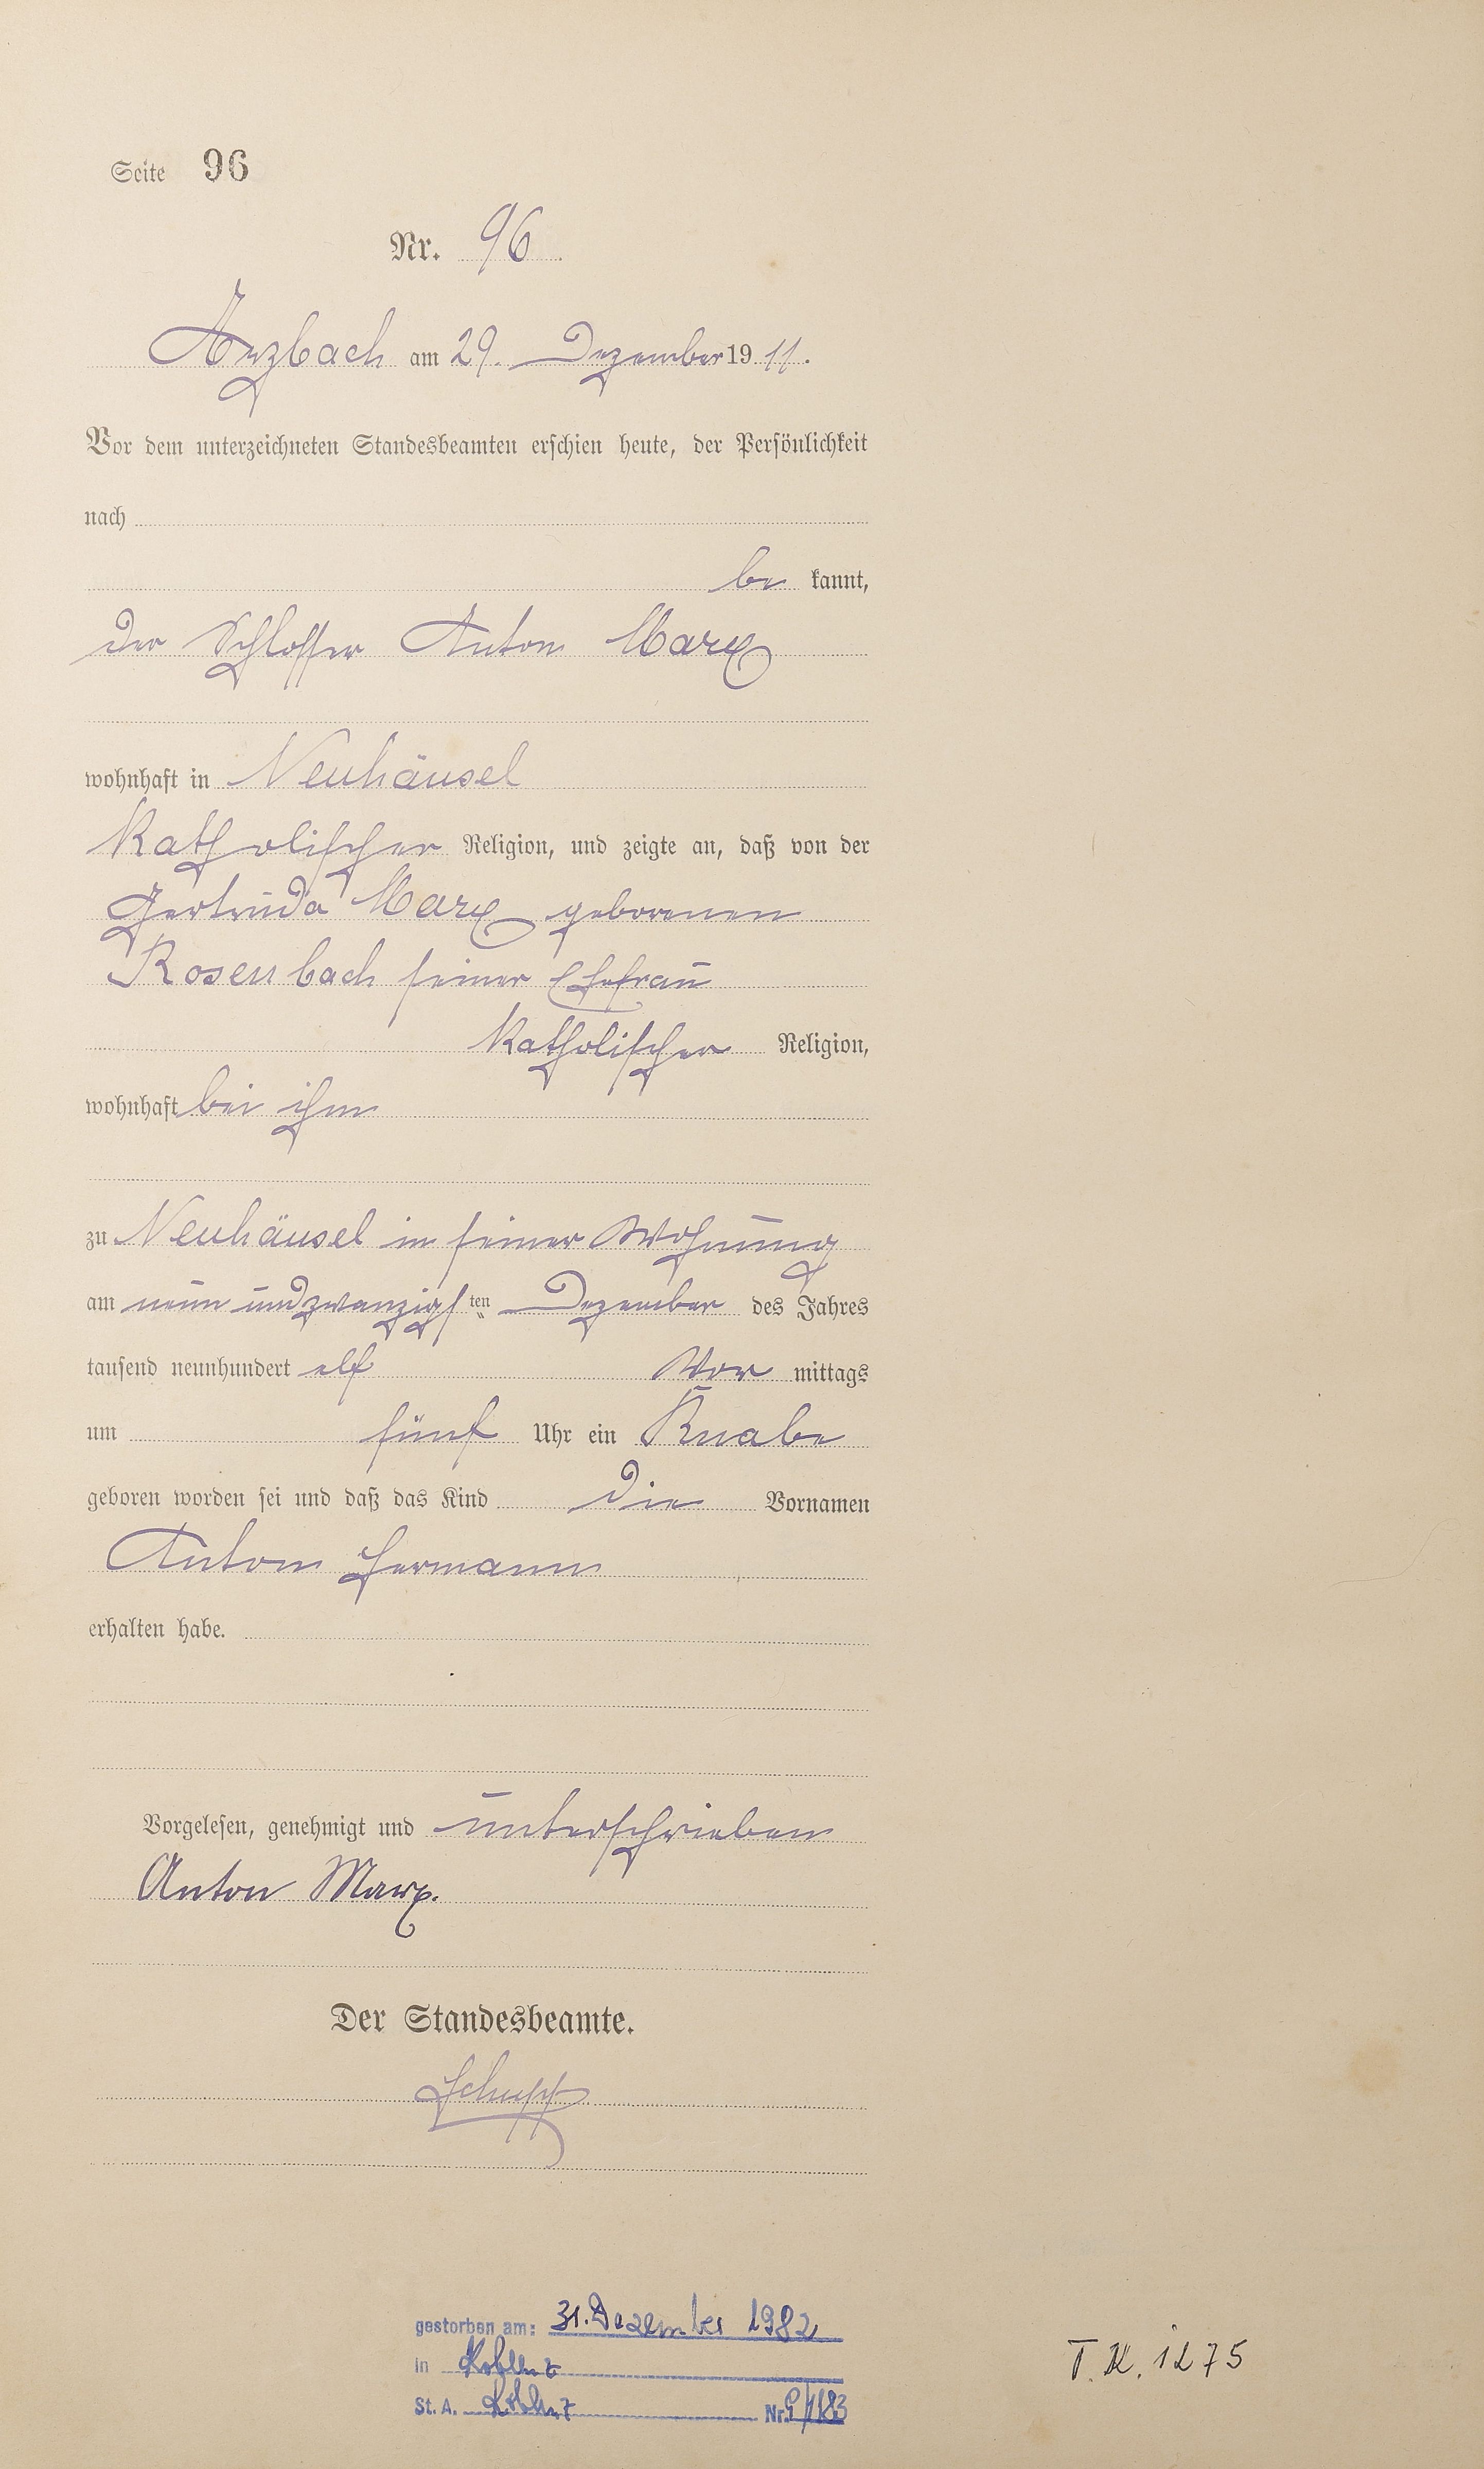 Seite 96
Nr. 96
Arzbach am 29. Dezember 1911.
Vor dem unterzeichneten Standesbeamten erschien heute, der Persönlichkeit
nach
be kannt,
der Schlosser Anton Marx
wohnhaft in Neuhäusel
katholischer Religion, und zeigte an, daß von der
Gertruda Marx geborenen
Rosenbach seiner Ehefrau
katholischer Religion,
wohnhaft bei ihm
zu Neuhäusel in seiner Wohnung
am neun und zwanzigsten Dezember des Jahres
tausend neunhundert elf Vor mittags
um fünf Uhr ein Knabe
geboren worden sei und daß das Kind die Vornamen
Anton Hermann
erhalten habe.
Vorgelesen, genehmigt und unterschrieben
Anton Marx.
Der Standesbeamte.
Schupp
gestorben am: 31. Dezember 1982
in Koblenz
St. A. Koblenz Nr.
T. K. 1275